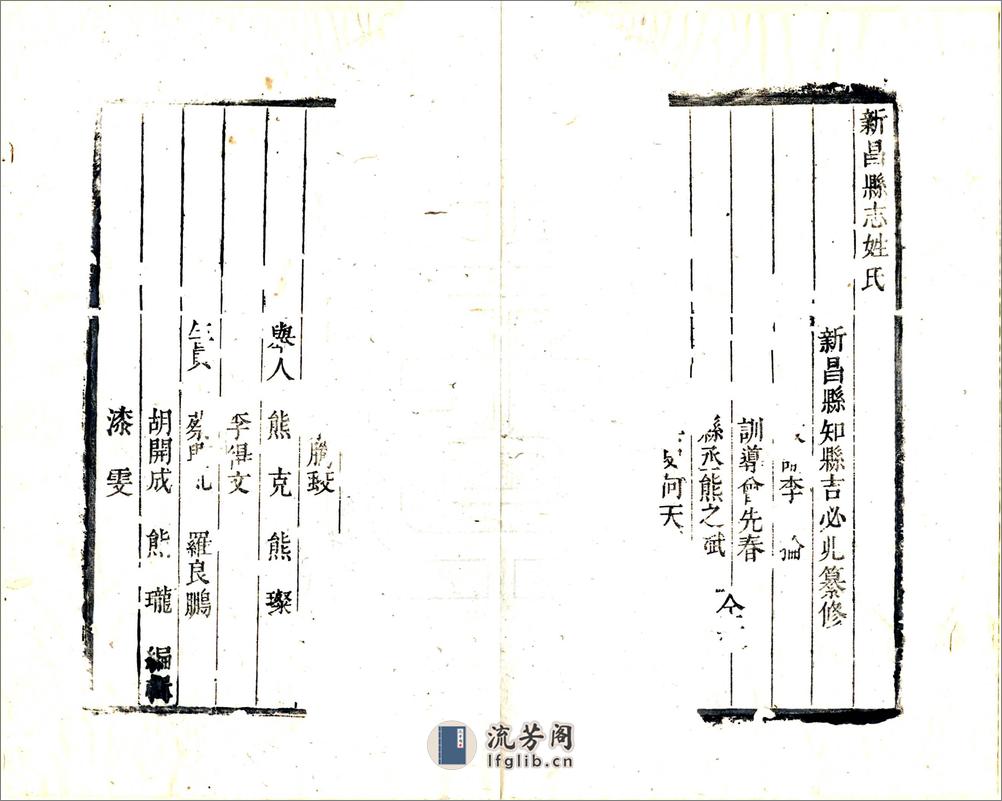 新昌縣志姓氏
新昌縣知縣吉必兆纂修
李 論
訓導曾先春
縣丞熊之斌 仝
何天
舉人 熊克 熊璨
李文
生員 羅良鵬
胡開成 熊瓏 編輯
漆雯
流芳阁
lfglib.cn